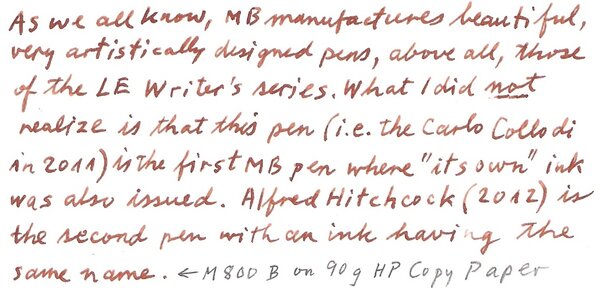 As we all know, MB manufactures beautiful,
very artistically designed pens, above all, those
of the LE Writer's series. What I did not
realize is that this pen (i.e. the Carlo Collodi
in 2011) is the first MB pen where "its own" ink
was also issued. Alfred Hitchcock (2012) is
the second pen with an ink having the
same name. ← M800 B on 90g HP Copy Paper